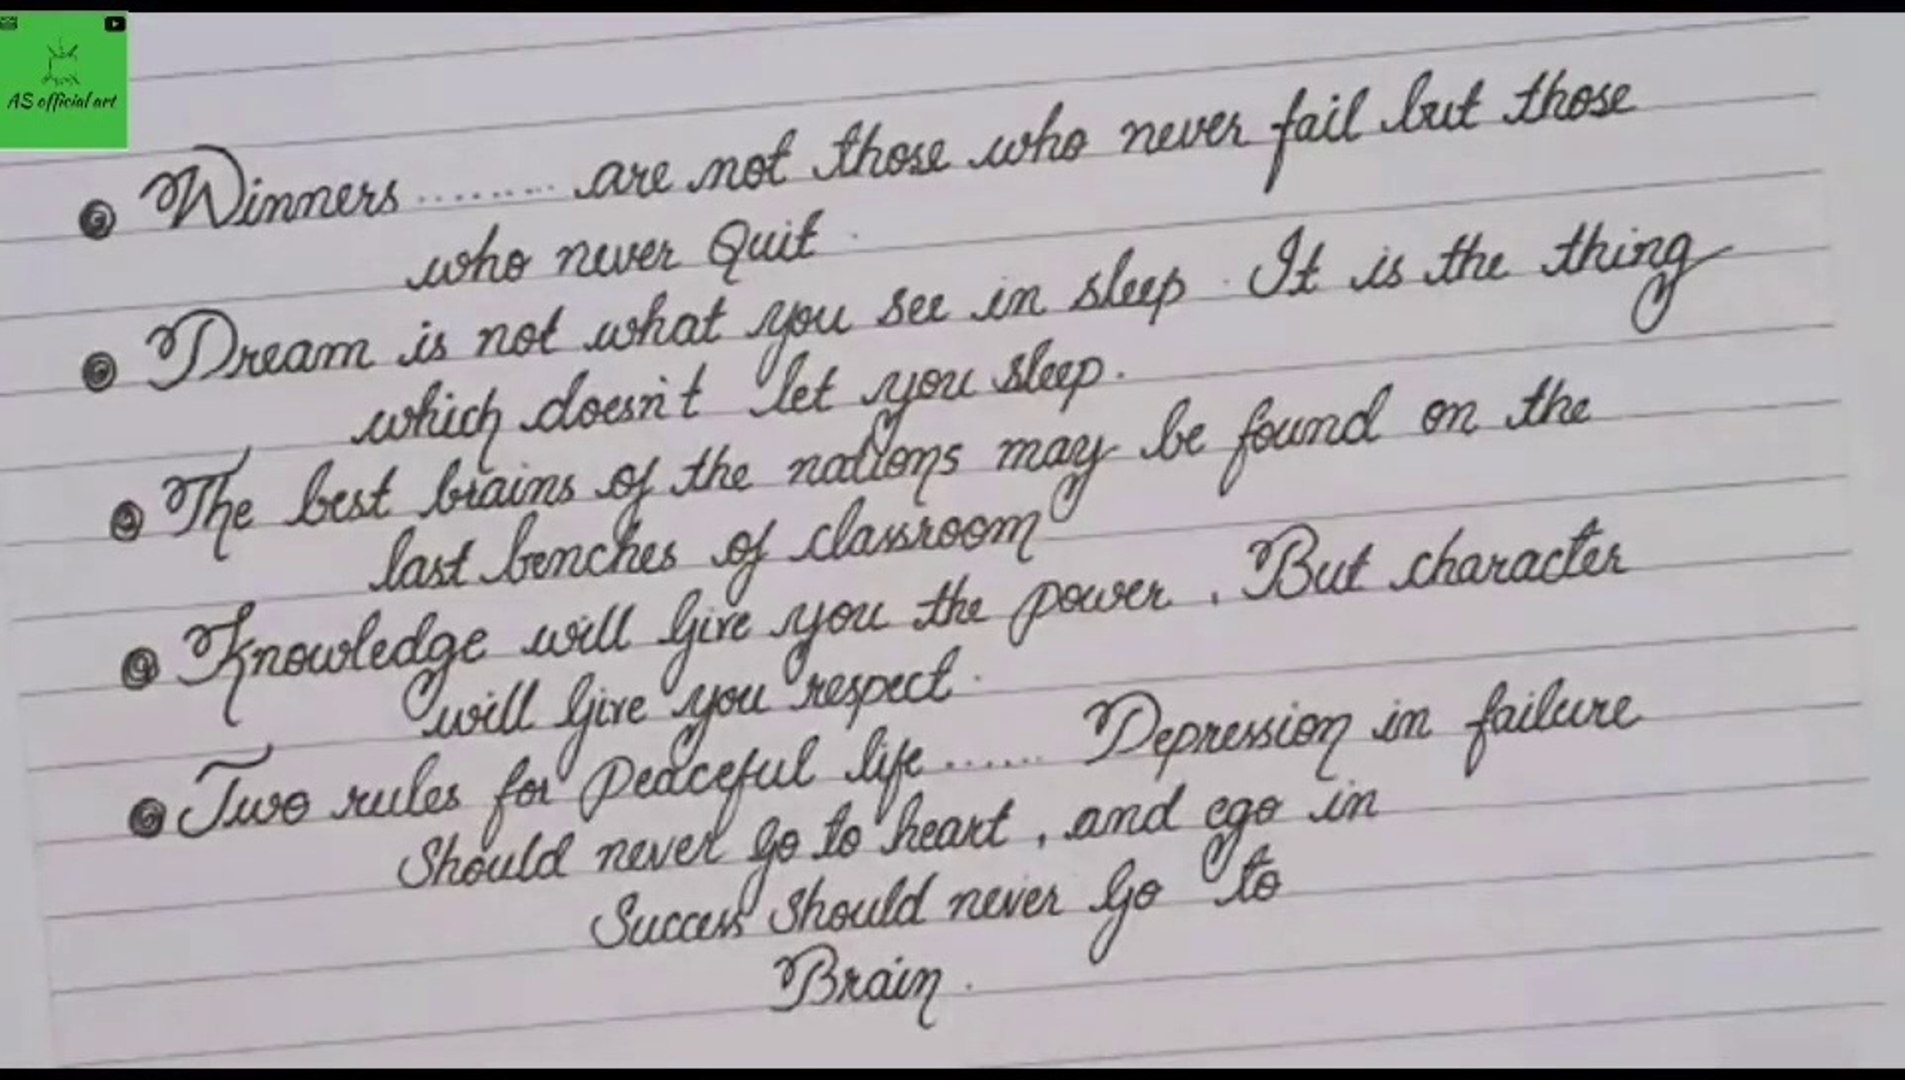 AS official art
Winners ........ are not those who never fail but those
who never Quit.
Dream is not what you see in sleep. It is the thing
which doesn't let you sleep.
The best brains of the nations may be found on the
last benches of classroom
Knowledge will Give you the power. But character
will Give you respect.
Two rules for Peaceful life ...... Depression in failure
Should never go to heart, and ego in
Success Should never Go to
Brain.